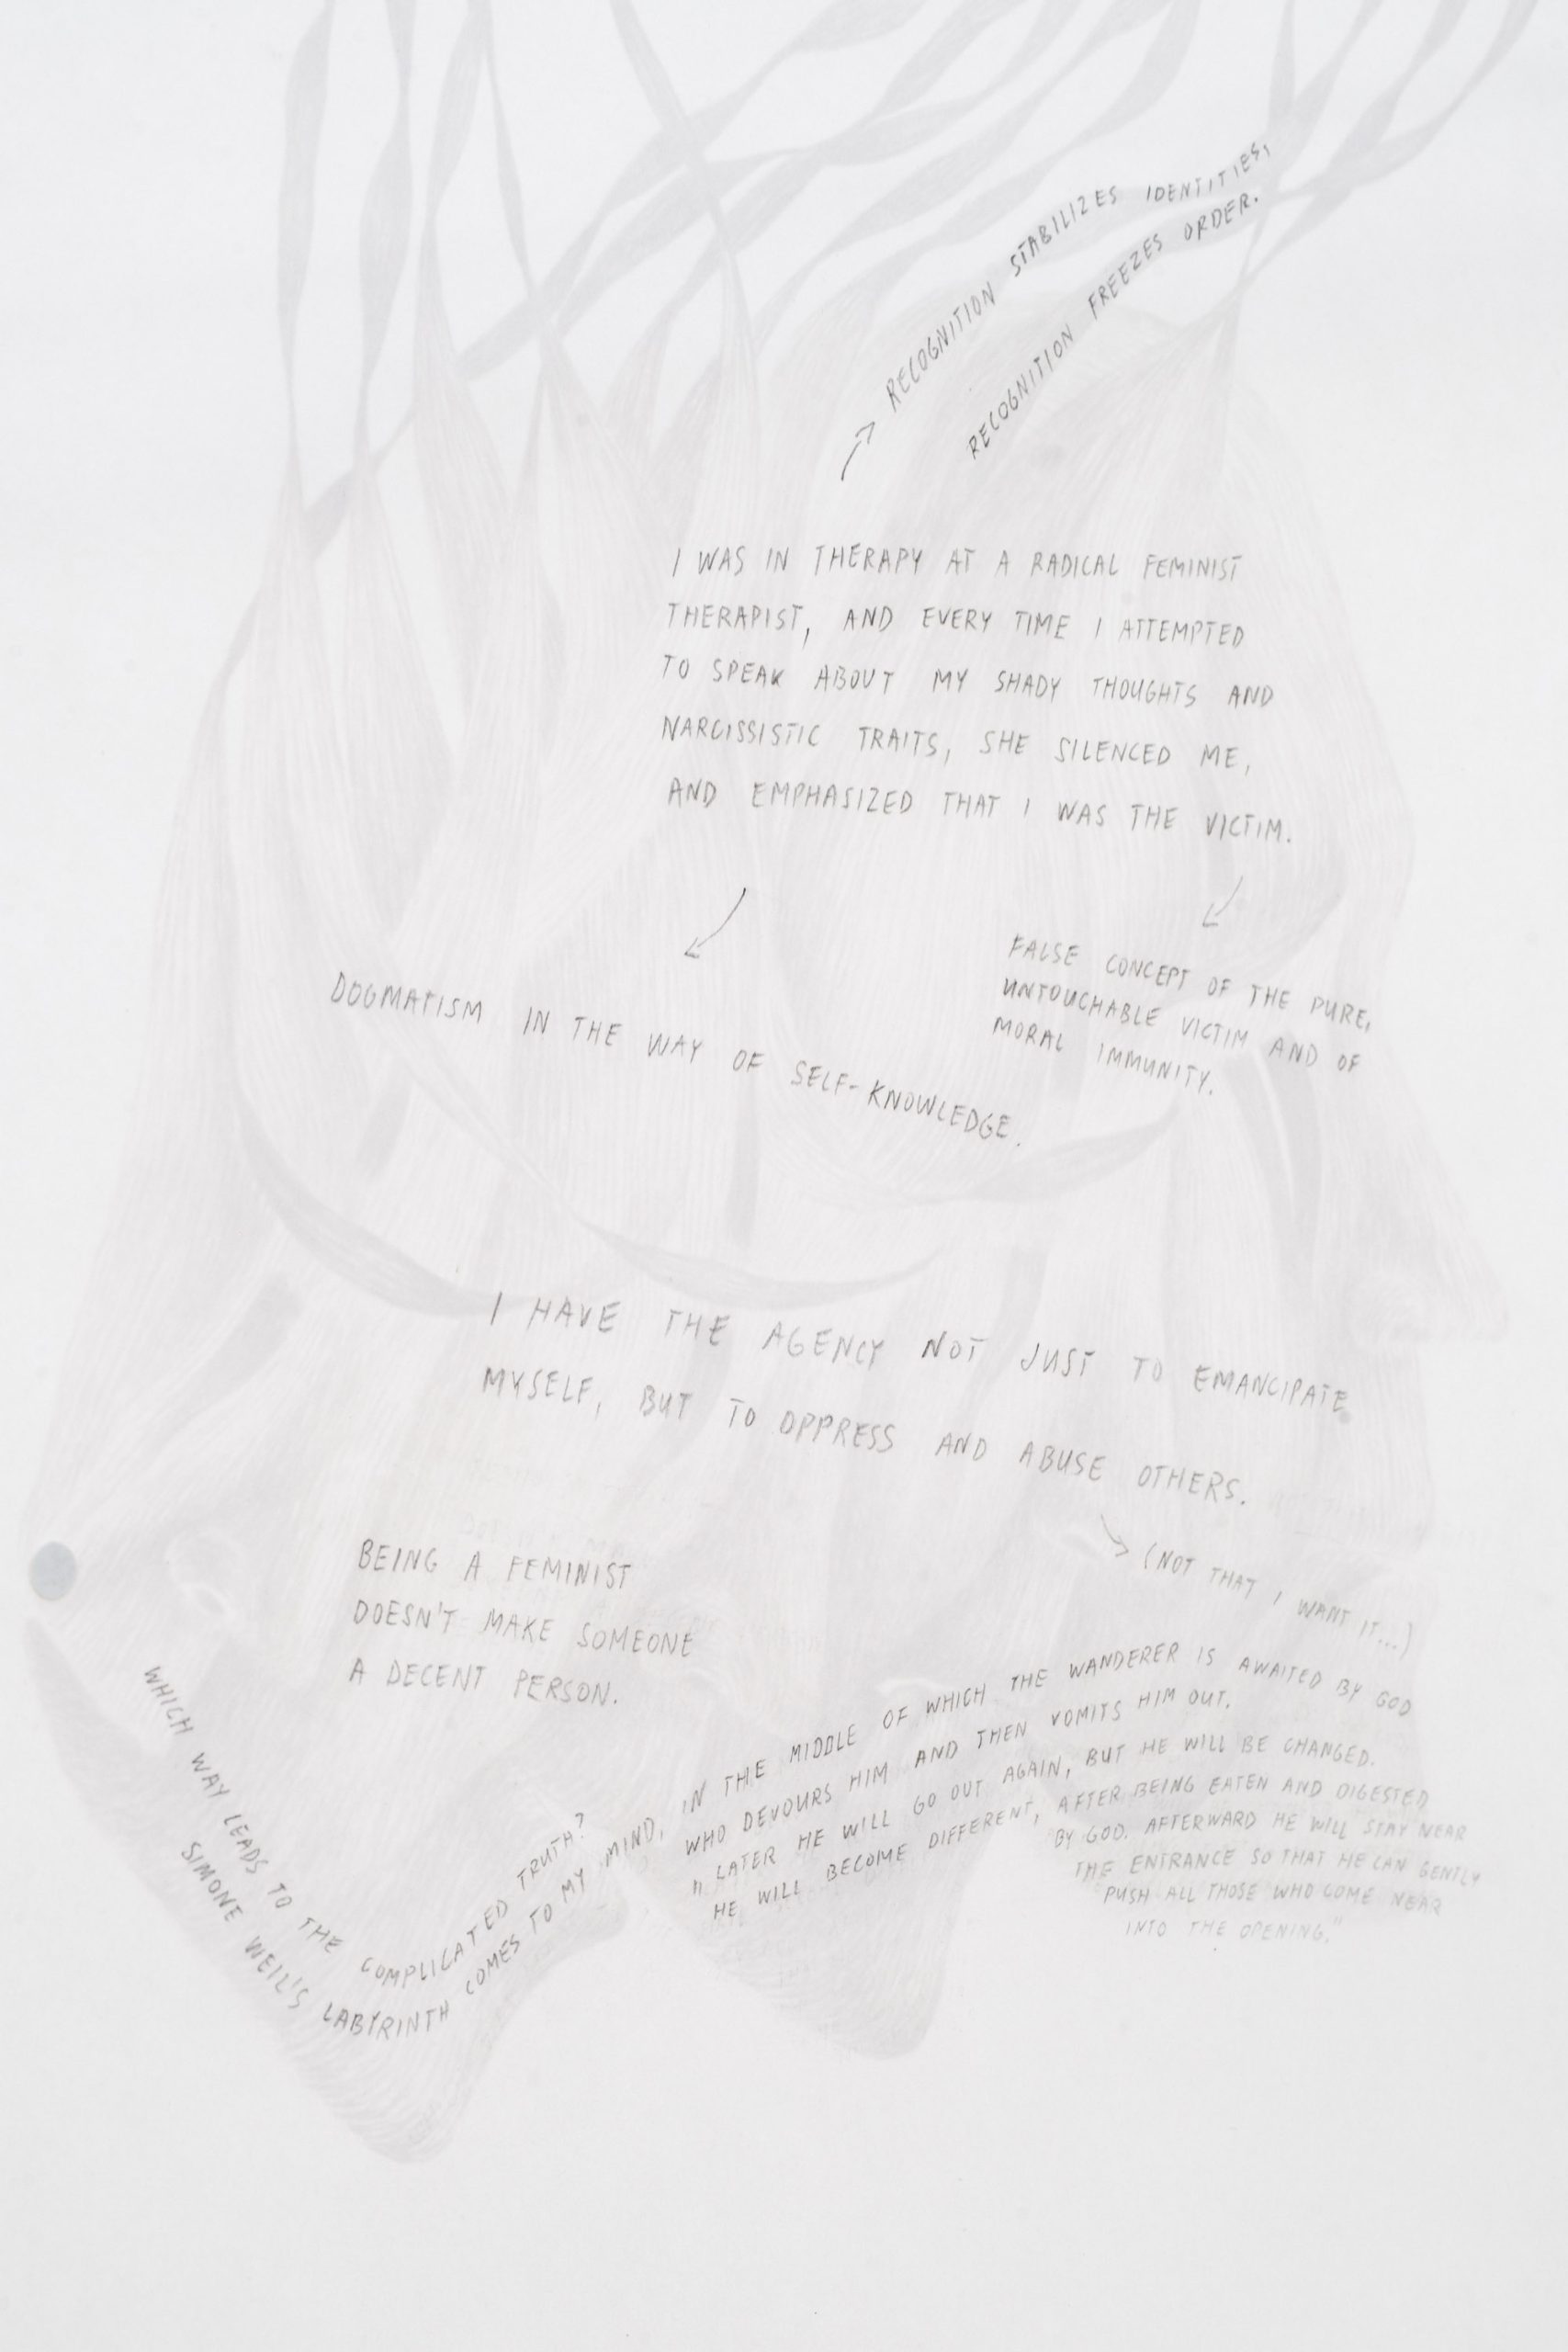 RECOGNITION STABILIZES IDENTITIES,
RECOGNITION FREEZES ORDER.
I WAS IN THERAPY AT A RADICAL FEMINIST
THERAPIST, AND EVERY TIME I ATTEMPTED
TO SPEAK ABOUT MY SHADY THOUGHTS AND
NARCISSISTIC TRAITS, SHE SILENCED ME,
AND EMPHASIZED THAT I WAS THE VICTIM.
DOGMATISM IN THE WAY OF SELF-KNOWLEDGE.
FALSE CONCEPT OF THE PURE,
UNTOUCHABLE VICTIM AND OF
MORAL IMMUNITY.
I HAVE THE AGENCY NOT JUST TO EMANCIPATE
MYSELF, BUT TO OPPRESS AND ABUSE OTHERS.
(NOT THAT I WANT IT...)
BEING A FEMINIST
DOESN'T MAKE SOMEONE
A DECENT PERSON.
WHICH WAY LEADS TO THE COMPLICATED TRUTH?
SIMONE WEIL'S LABYRINTH COMES TO MY MIND, IN THE MIDDLE OF WHICH THE WANDERER IS AWAITED BY GOD
WHO DEVOURS HIM AND THEN VOMITS HIM OUT.
„LATER HE WILL GO OUT AGAIN, BUT HE WILL BE CHANGED.
HE WILL BECOME DIFFERENT, AFTER BEING EATEN AND DIGESTED
BY GOD. AFTERWARD HE WILL STAY NEAR
THE ENTRANCE SO THAT HE CAN GENTLY
PUSH ALL THOSE WHO COME NEAR
INTO THE OPENING."